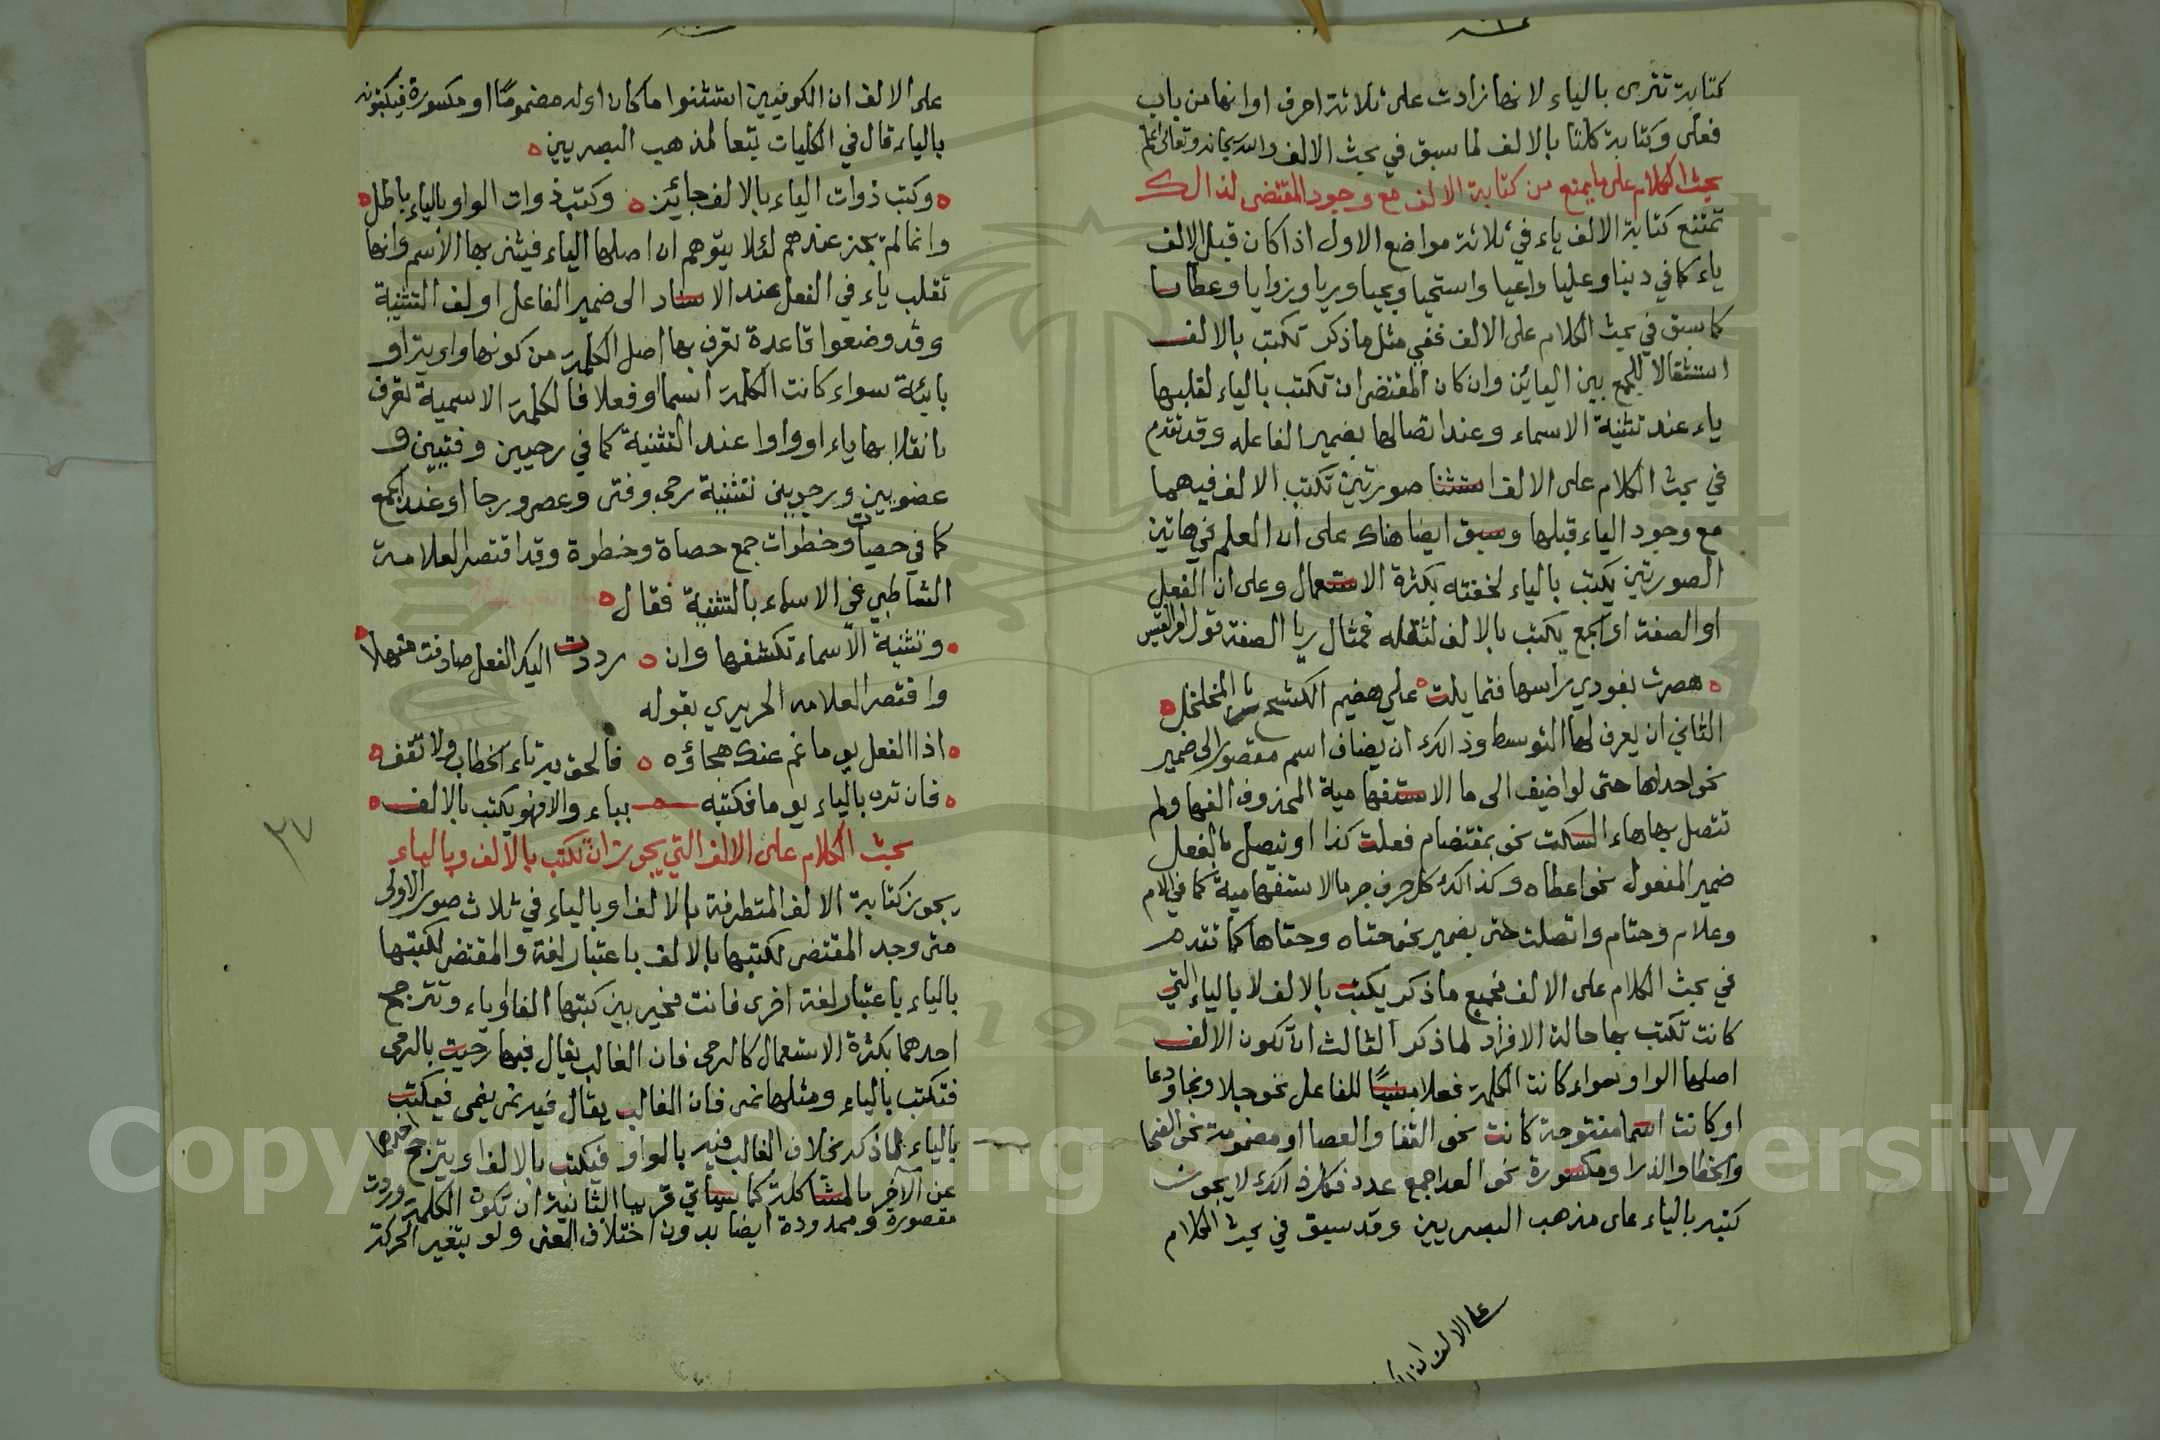 كتابة تترى بالياء لانها زادت على ثلاثة احرف او انها من باب
فعلى وكتابة كلتا بالالف لما سبق في بحث الالف والله سبحانه وتعالى اعلم
بحث الكلام على ما يمنع من كتابة الالف مع وجود المقتضى لذالك
تمتنع كتابة الالف ياء في ثلاثة مواضع الاول اذا كان قبل الالف
ياء كما في دنيا وعليا واعيا واستحيا ويحيا وريا وزوايا وعطايا
كما سبق في بحث الكلام على الالف ففي مثل ما ذكر تكتب بالالف
استثقالا للجمع بين اليائين وان كان المقتضى ان تكتب بالياء لقلبها
ياء عند تثنية الاسماء وعند اتصالها بضمير الفاعله وقد تقدم
في بحث الكلام على الالف استثنا صورتين تكتب الالف فيهما
مع وجود الياء قبلها وسبق ايضا هناك على ان العلم في هاتين
الصورتين يكتب بالياء لخفته بكثرة الاستعمال وعلى ان الفعل
او الصفة او الجمع يكتب بالالف لثقله فمثال ريا الصفة قول امر القيس
هصرت بفودي راسها فتمايلت علي هضيم الكشح ريا المخلخل
الثاني ان يعرف لها التوسط وذالك ان يضاف اسم مقصور الى ضمير
نحو احداها حتى لو اضيف الى ما الاستفهامية المحذوف الفها ولم
تتصل بها هاء السكت نحو بمقتضام فعلت كذا او يتصل بالفعل
ضمير المفعول نحو اعطاه وكذالك كل حرف جر ما الاستفهامية كما في الام
وعلام وحتام واتصلت حتى بضمير نحو حتاه وحتاها كما تقدم
في بحث الكلام على الالف فجميع ما ذكر يكتب بالالف لا بالياء التي
كانت تكتب بها حالة الافراد لما ذكر الثالث ان تكون الالف
اصلها الواو سواء كانت الكلمة فعلا مبنيا للفاعل نحو جلا ونجا ودعا
او كانت اسما مفتوحة كانت نحو القفا والعصا او مضمومة نحو الضحا
والخطا والذرا ومكسورة نحو العدا جمع عدد فكل ذالك لا يجوز
كتبه بالياء على مذهب البصريين وقد سبق في بحث الكلام
على الالف ان
على الالف ان الكوفيين استثنوا ما كان اوله مضموما او مكسورة فيكتبونه
بالياء قال في الكليات تبعا لمذهب البصريين
وكتب ذوات الياء بالالف جائز وكتب ذوات الواو بالياء باطل
وانما لم يجز عندهم لئلا يتوهم ان اصلها الياء فيثنى بها الاسم وانها
تقلب ياء في الفعل عند الاسناد الى ضمير الفاعل او لف التثنية
وقد وضعوا قاعدة تعرف بها اصل الكلمة من كونها واوية او
يائية سواء كانت الكلمة اسما او فعلا فالكلمة الاسمية تعرف
بانقلابها ياء او واوا عند التثنية كما في رحيين وفتيين و
عضوين ورجوين تثنية رحى وفتى وعصى ورجا او عند الجمع
كما في حصيات وخطوات جمع حصاة وخطوة وقد اقتصر العلامة
الشاطبي في الاسماء بالتثنية فقال
وتثنية الاسماء تكشفها وان رددت اليك الفعل صادفت منهلا
واقتصر العلامه الحريري بقوله
اذا الفعل يوما غم عنك هجاؤه فالحق به تاء الخطاب ولا تقف
فان تره بالياء يوما فكتبه بياء والا فهو يكتب بالالف
بحث الكلام على الالف التي يجوز ان تكتب بالالف وبالياء
يجوز كتابة الالف المتطرفة بالالف او بالياء في ثلاث صور الاولى
متى وجد المقتضى لكتبها بالالف باعتبار لغة والمقتضى لكتبها
بالياء باعتبار لغة اخرى فانت مخير بين كتبها الفا او ياء وتترجح
احدهما بكثرة الاستعمال كالرحى فان الغالب يقال فيها رحيت بالرحى
فتكتب بالياء ومثلها نمى فان الغالب يقال فيه نمى ينمى فيكتب
بالياء لما ذكر بخلاف الغالب فيه بالواو فيكتب بالالف او يترجح احدها
عن الآخر بالمشاكلة كما سيأتي قريبا الثانية ان تكون الكلمة وردت
مقصورة وممدودة ايضا بدون اختلاف المعنى ولو بتغير الحركة
٢٧
Copyright © King Saud University
1957